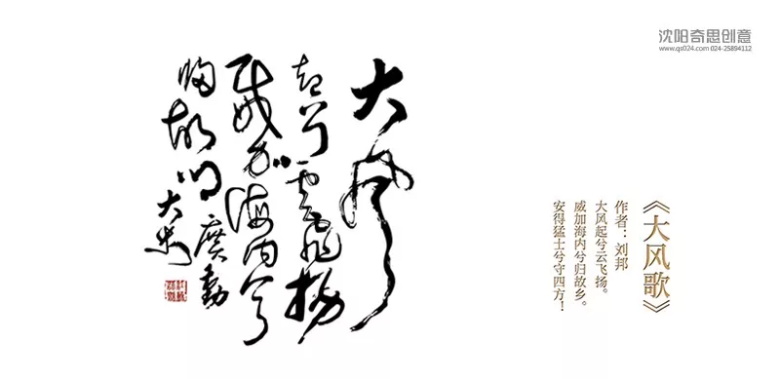 沈阳奇思创意
www.qs024.com 024-25894112
《大风歌》
作者：刘邦
大风起兮云飞扬。
威加海内兮归故乡。
安得猛士兮守四方！
大风
起兮云飞扬
威加海内兮
归故乡